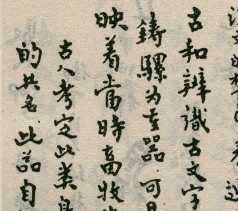 古和辨識古文字
鑄騾為重器,可見
映着當時畜牧
古人考定此类
的共名,此器自